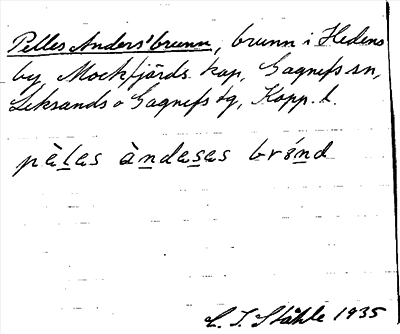 Pelles Anders' brunn, brunn i Hedens
by, Mockfjärds kap, Gagnefs sn,
Leksands o Gagnefs tg, Kopp. l.
pèlas àndasas brónd
C. I. Ståhle 1935